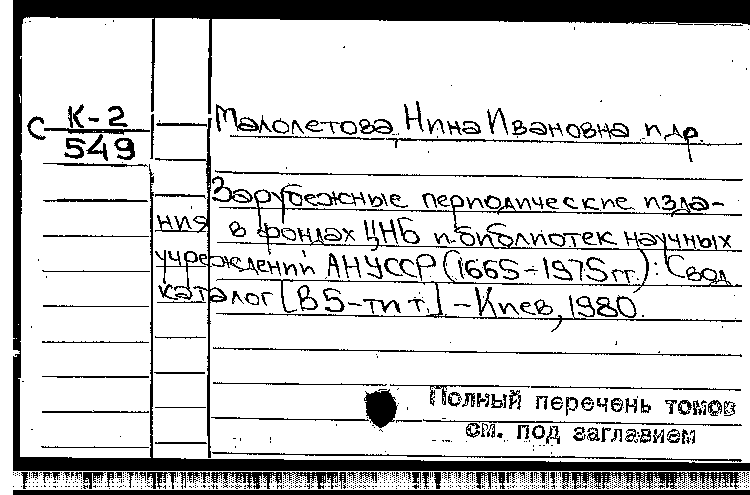 С К-2
549
Малолетова, Нина Ивановна и др.
Зарубежные периодические изда-
ния в фондах ЦНБ и библиотек научных
учреждений АН УССР (1665-1975 гг.). Свод.
каталог [В 5-ти т.] - Киев, 1980.
Полный перечень томов
см. под заглавием